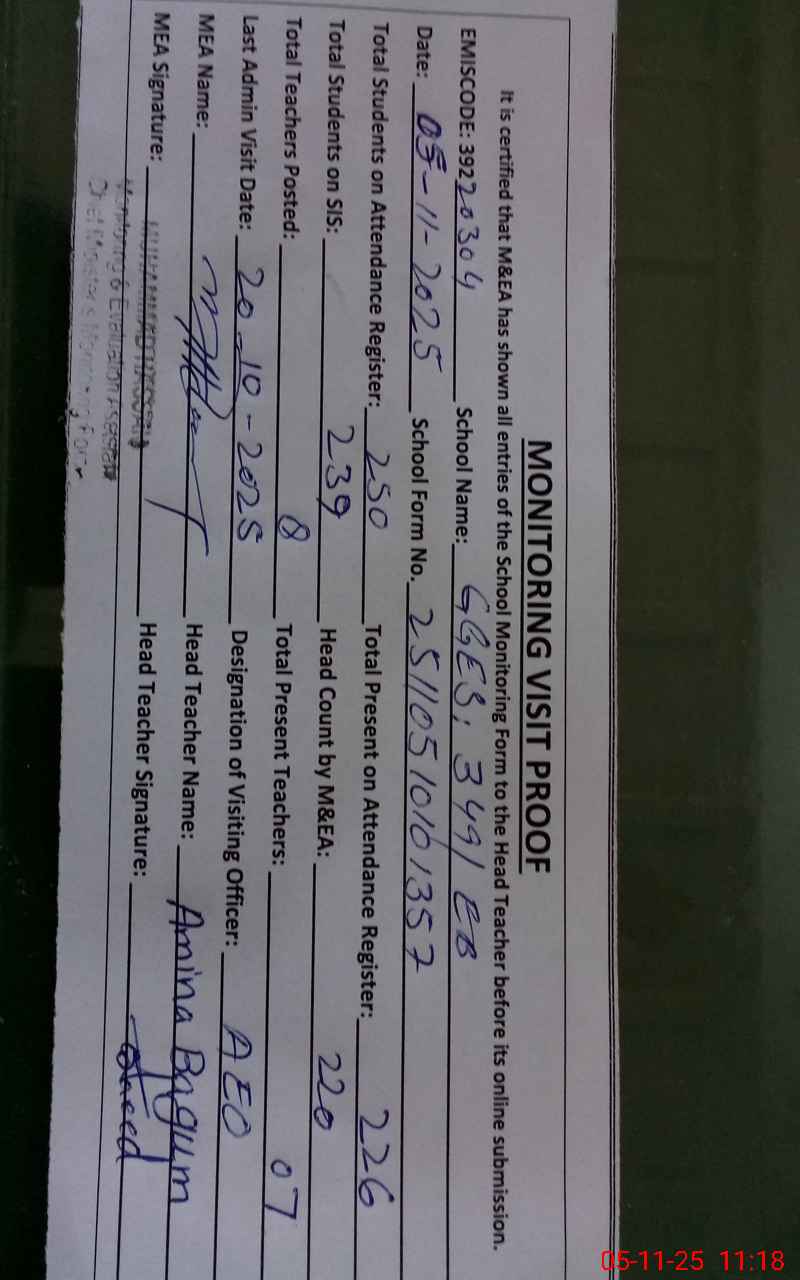 MONITORING VISIT PROOF
It is certified that M&EA has shown all entries of the School Monitoring Form to the Head Teacher before its online submission.
EMISCODE: 39220304 School Name: GGES, 349/EB
Date: 05-11-2025 School Form No. 2511051010 1357
Total Students on Attendance Register: 250 Total Present on Attendance Register: 226
Total Students on SIS: 239 Head Count by M&EA: 220
Total Teachers Posted: 8 Total Present Teachers: 07
Last Admin Visit Date: 20-10-2025 Designation of Visiting Officer: AEO
MEA Name: Head Teacher Name: Amina Bagum
MEA Signature: Head Teacher Signature:
Monitoring & Evaluation Assistant
Chief Minister's Monitoring Force
05-11-25 11:18